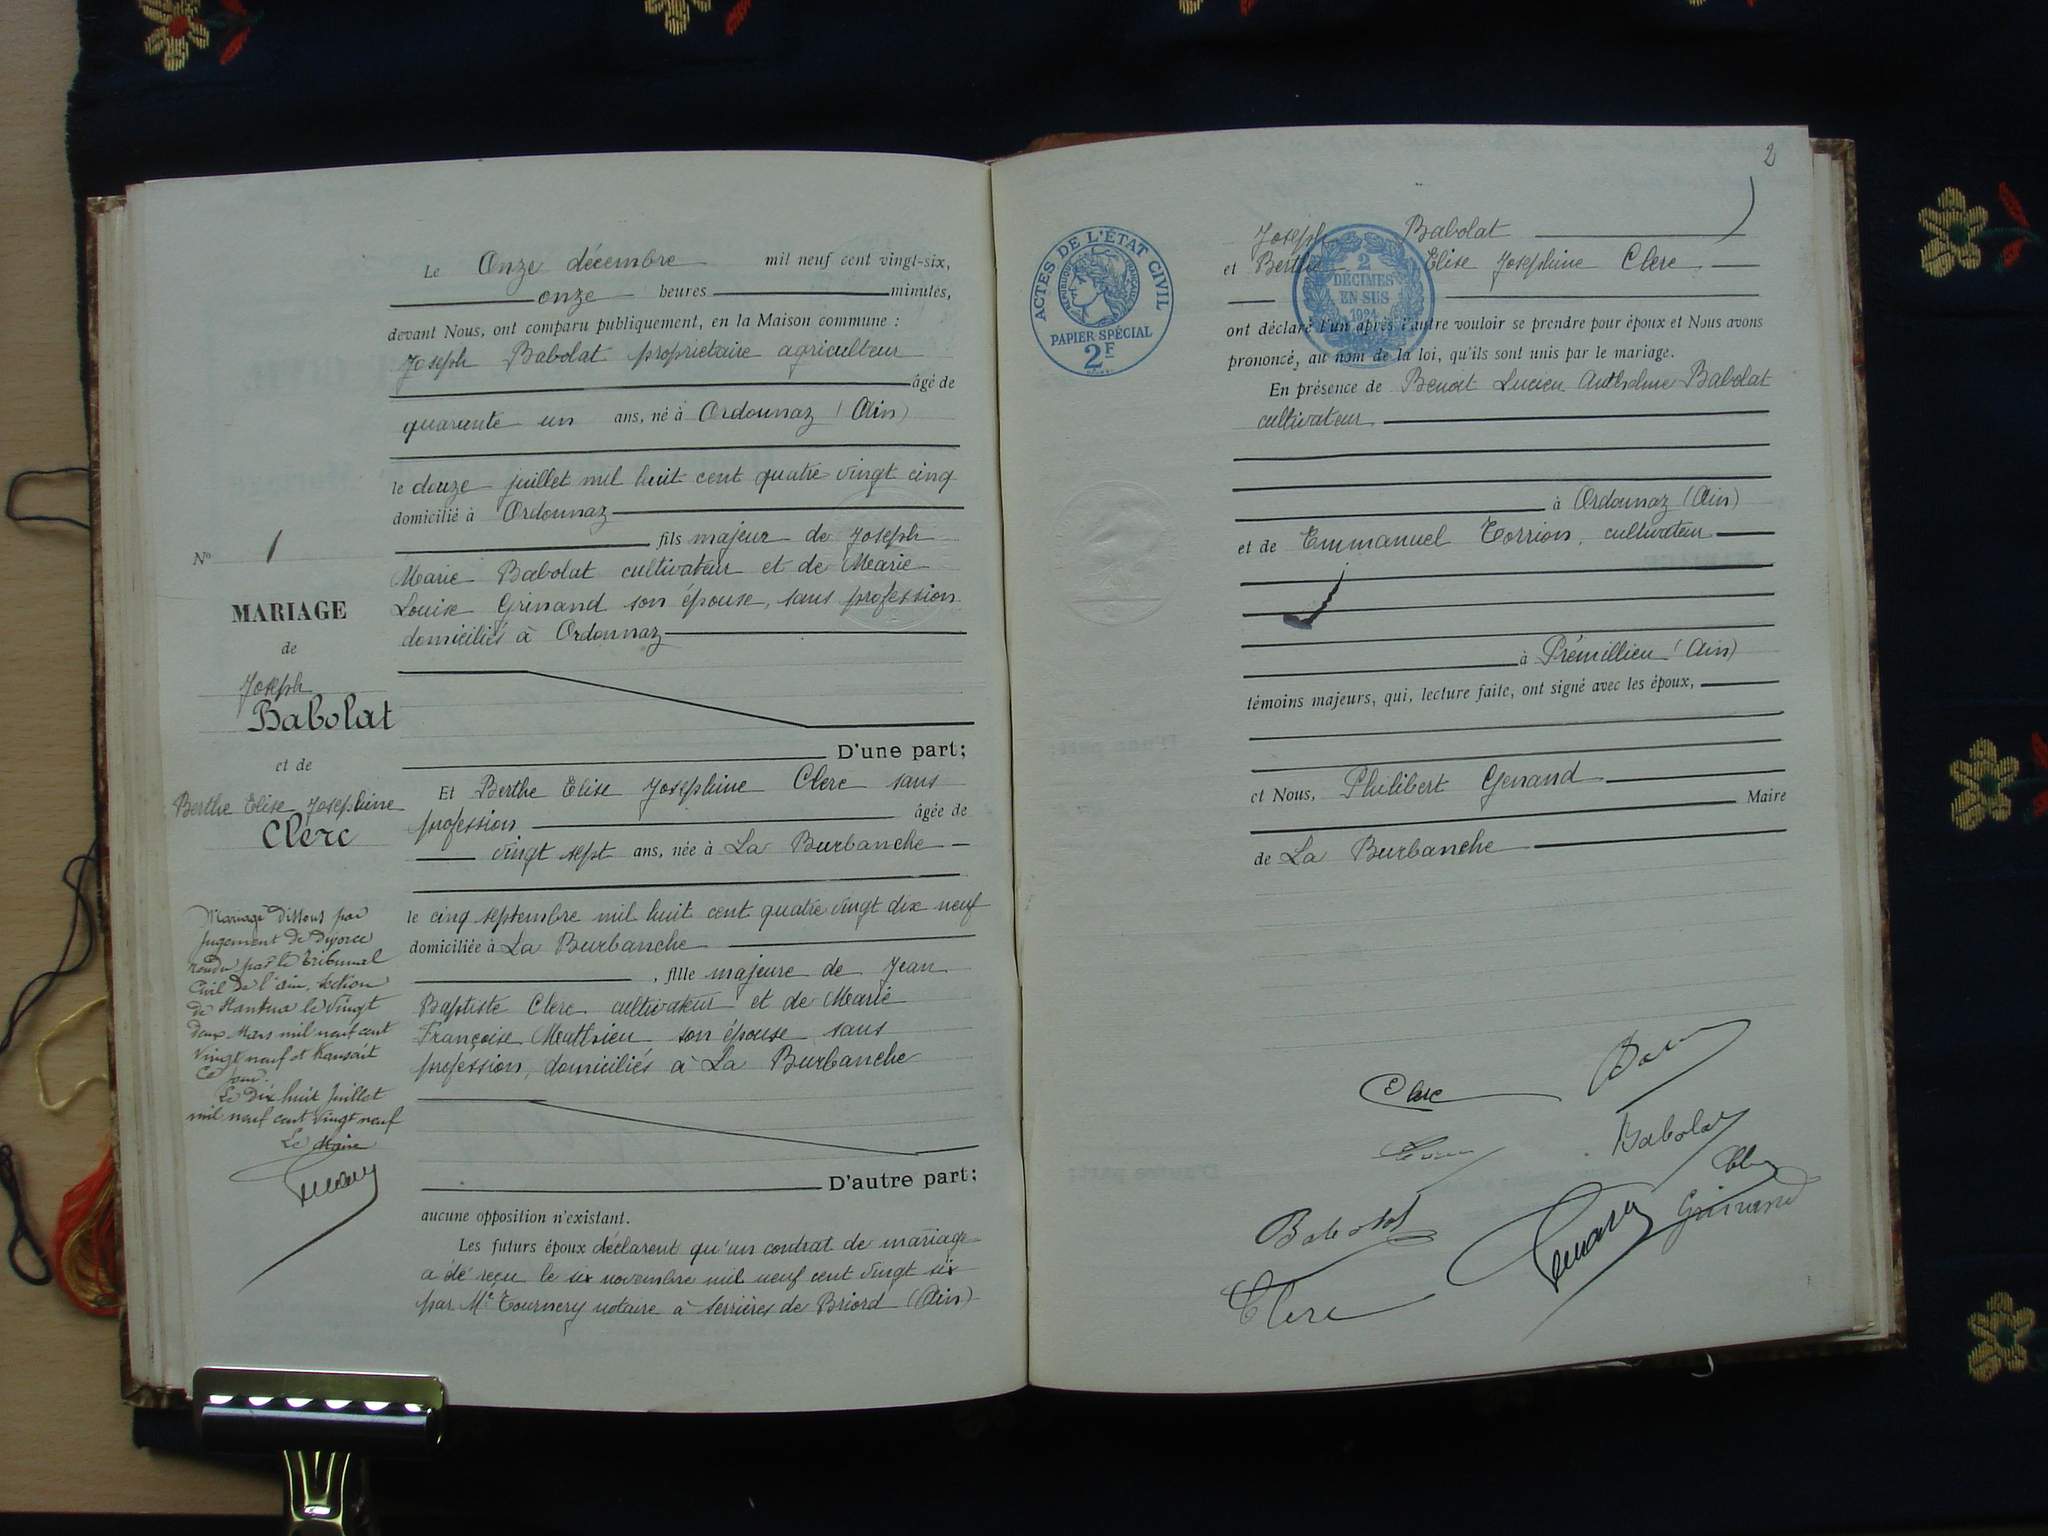 Le Onze décembre mil neuf cent vingt-six,
onze heures minutes,
devant Nous, ont comparu publiquement, en la Maison commune :
Joseph Babolat propriétaire agriculteur
âgé de
quarante un ans, né à Ordonnaz (Ain)
le douze juillet mil huit cent quatre vingt cinq
domicilié à Ordonnaz
fils majeur de Joseph
Marie Babolat cultivateur et de Marie
Louise Grinand son épouse, sans profession
domiciliés à Ordonnaz
D'une part;
Et Berthe Elise Joséphine Clerc sans
profession âgée de
vingt sept ans, née à La Burbanche
le cinq septembre mil huit cent quatre vingt dix neuf
domiciliée à La Burbanche
, fille majeure de Jean
Baptiste Clerc cultivateur et de Marie
Françoise Mathieu son épouse sans
profession, domiciliés à La Burbanche
D'autre part;
aucune opposition n'existant.
Les futurs époux déclarent qu'un contrat de mariage
a été reçu le six novembre mil neuf cent vingt six
par Me Tournery notaire à Serrières de Briord (Ain)
No 1
MARIAGE
de
Joseph
Babolat
et de
Berthe Elise Joséphine
Clerc
Mariage dissous par
jugement de divorce
rendu par le tribunal
Civil de l'Ain, section
de Nantua le vingt
deux Mars mil neuf cent
vingt neuf et transcrit
ce jour.
Le Dix huit Juillet
mil neuf cent vingt neuf
Le Maire
Genand
2
ACTES DE L'ÉTAT CIVIL
RÉPUBLIQUE FRANÇAISE
PAPIER SPÉCIAL
2F
2
DÉCIMES
EN SUS
1924
Joseph Babolat
et Berthe Elise Joséphine Clerc
ont déclaré l'un après l'autre vouloir se prendre pour époux et Nous avons
prononcé, au nom de la loi, qu'ils sont unis par le mariage.
En présence de Benoit Lucien Anthelme Babolat
cultivateur
à Ordonnaz (Ain)
et de Emmanuel Torrion, cultivateur
à Prémillieu (Ain)
témoins majeurs, qui, lecture faite, ont signé avec les époux,
et Nous, Philibert Genand
Maire
de La Burbanche
Clerc
Babolat
Babolat
Genand
Grinand
Clerc